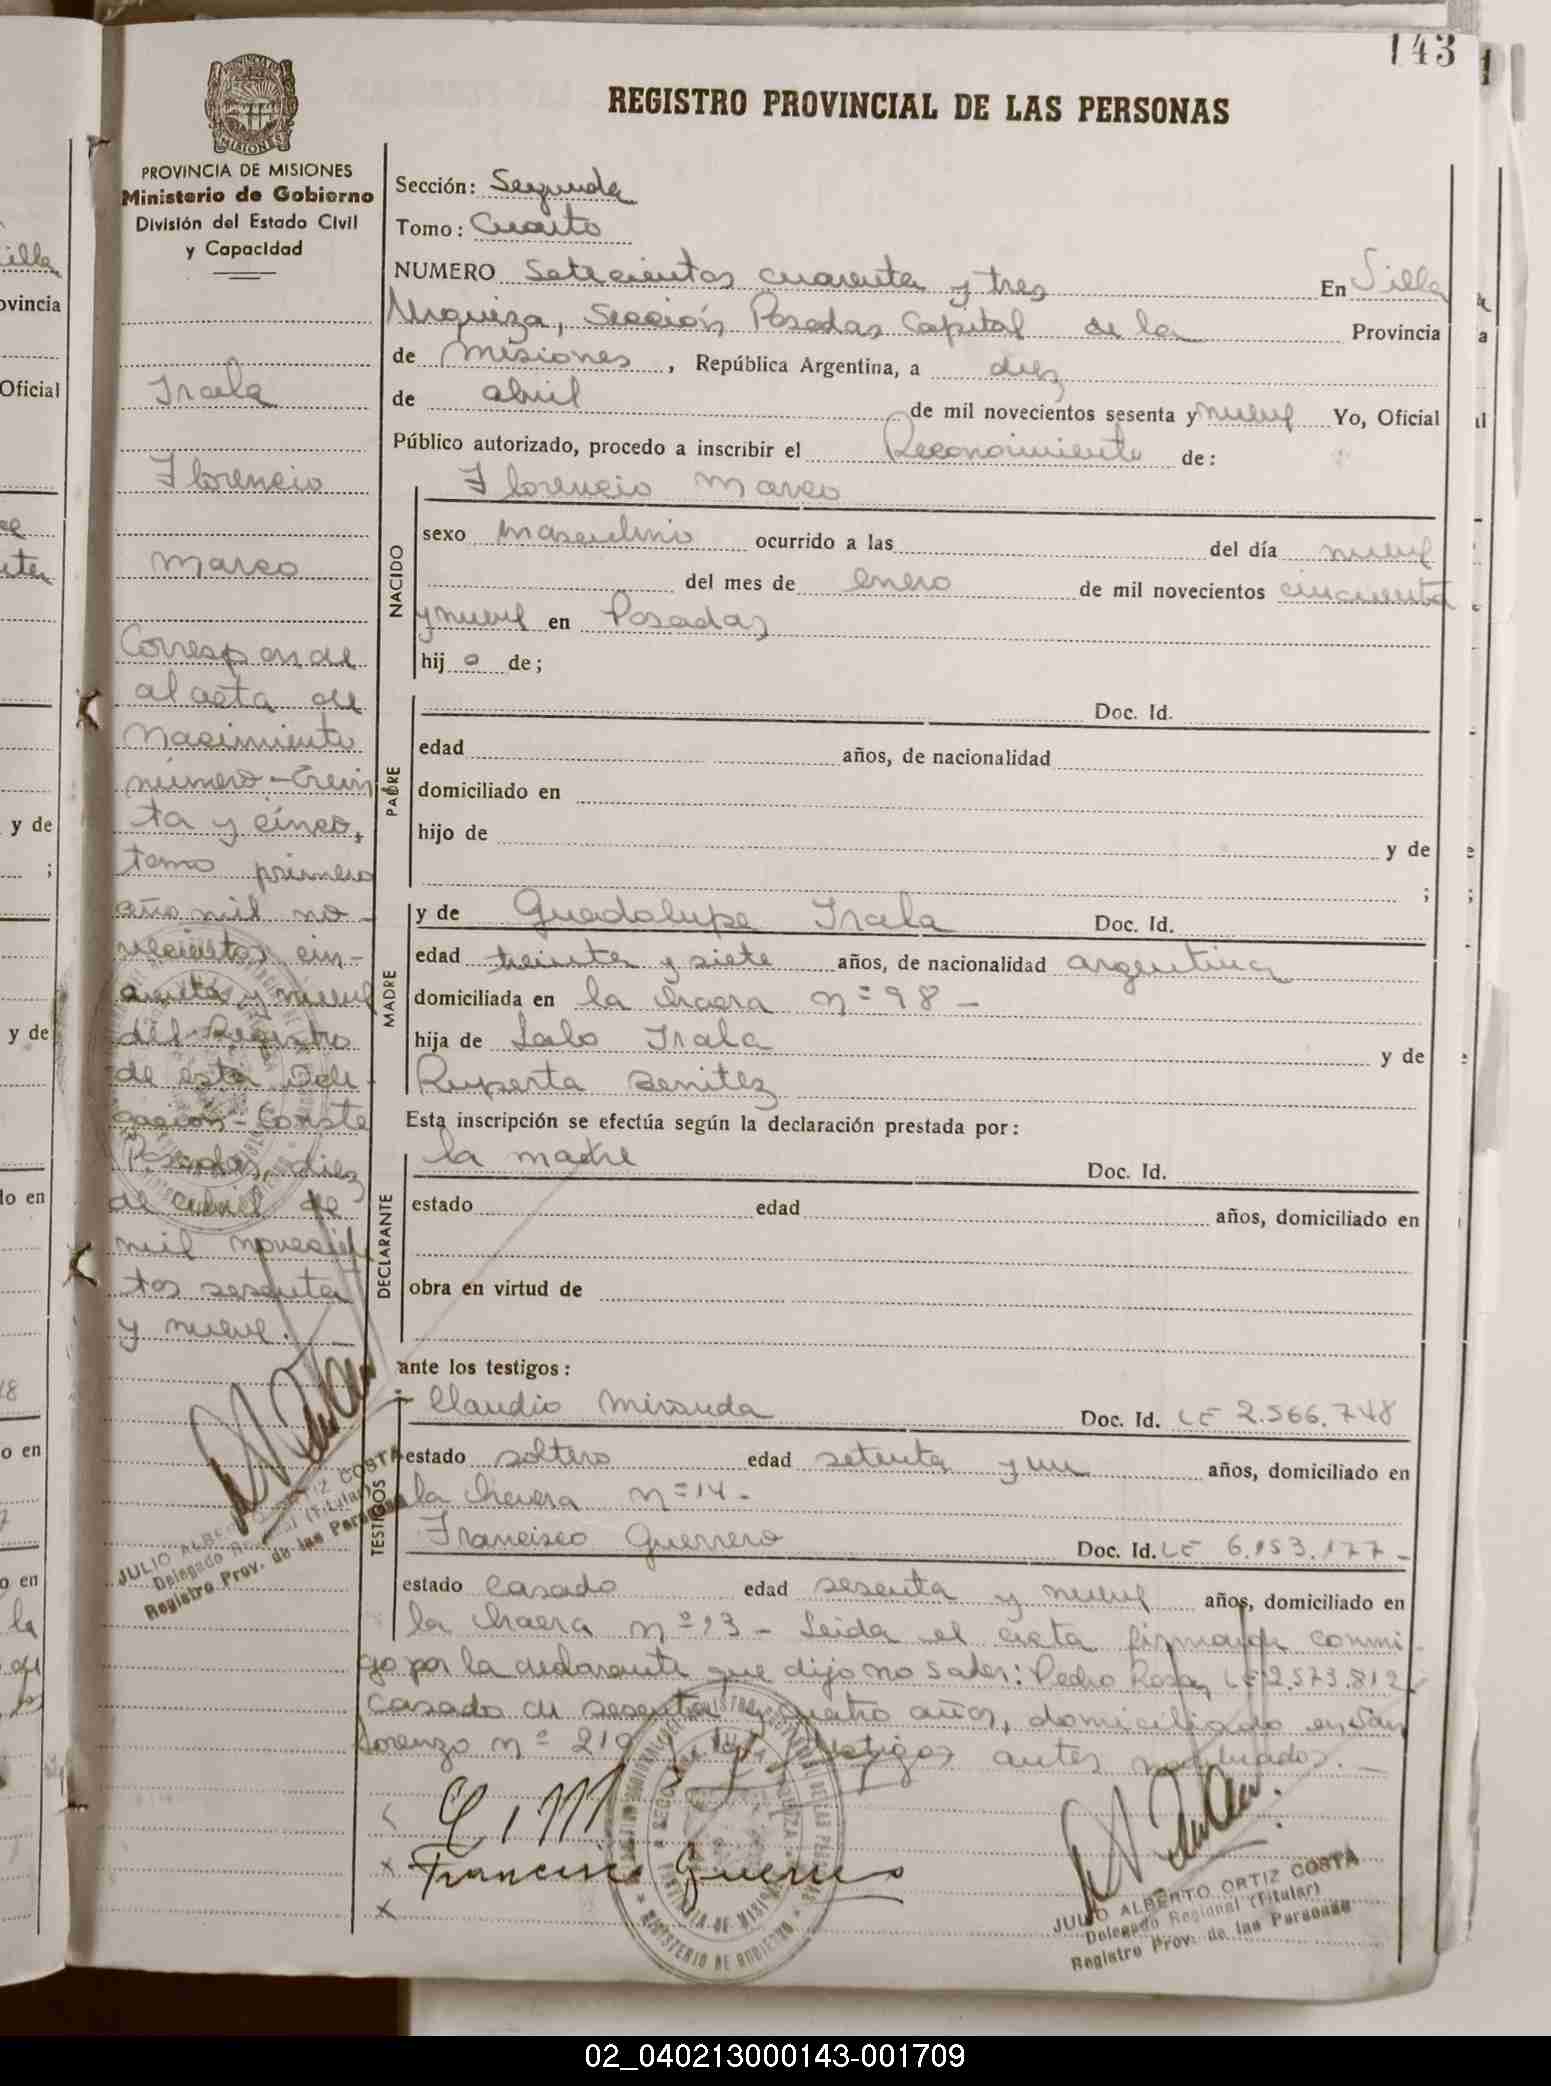 143
REGISTRO PROVINCIAL DE LAS PERSONAS
PROVINCIA DE MISIONES
Ministerio de Gobierno
División del Estado Civil
y Capacidad
Irala
Florencio
Marco
Corresponde
al acta de
Nacimiento
número - trein
ta y cinco,
tomo primero
año mil no-
vecientos cin-
cuenta y nueve
del Registro
de esta Dele-
gación - Conste
Posadas, diez
de abril de
mil novecien
tos sesenta
y nueve.
JULIO ALBERTO ORTIZ COSTA
Delegado Regional (Titular)
Registro Prov. de las Personas
Sección: Segunda
Tomo: Cuarto
NUMERO Setecientos cuarenta y tres En Villa
Urquiza, Sección Posadas Capital de la Provincia
de Misiones, República Argentina, a diez
de abril de mil novecientos sesenta y nueve Yo, Oficial
Público autorizado, procedo a inscribir el Reconocimiento de:
Florencio Marco
NACIDO
sexo masculino ocurrido a las del día nueve
del mes de enero de mil novecientos cincuenta
y nueve en Posadas
hij o de;
PADRE
Doc. Id.
edad años, de nacionalidad
domiciliado en
hijo de y de
;
MADRE
y de Guadalupe Irala Doc. Id.
edad treinta y siete años, de nacionalidad argentina
domiciliada en la chacra nº 98 -
hija de Lalo Irala y de
Ruperta Benitez
Esta inscripción se efectúa según la declaración prestada por:
DECLARANTE
la madre Doc. Id.
estado edad años, domiciliado en
obra en virtud de
ante los testigos:
TESTIGOS
Claudio Miranda Doc. Id. LE 2.566.748
estado soltero edad setenta y un años, domiciliado en
la chacra nº 14 -
Francisco Guerrero Doc. Id. LE 6.153.177 -
estado casado edad sesenta y nueve años, domiciliado en
la chacra nº 93 - Leida el acta firmando conmi-
go por la declarante que dijo no saber: Pedro Rosa, LE 2.573.812
casado de sesenta y cuatro años, domiciliado en San
Lorenzo nº 219 y testigos antes nombrados. -
C, M
Francisco Guerrero
JULIO ALBERTO ORTIZ COSTA
Delegado Regional (Titular)
Registro Prov. de las Personas
02_040213000143-001709